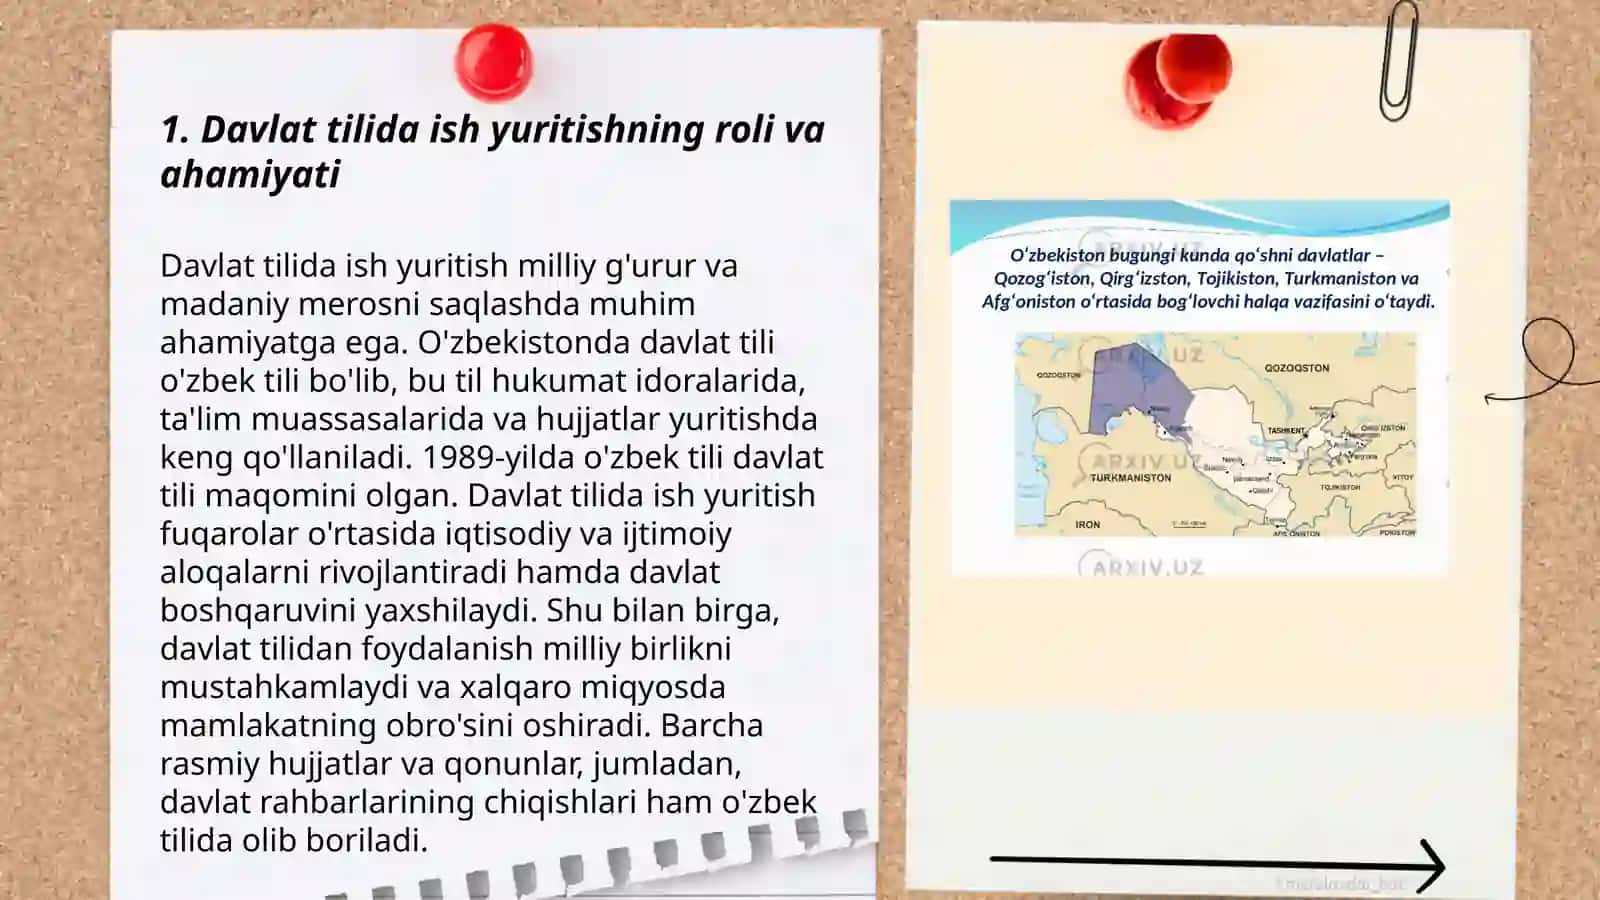 1. Davlat tilida ish yuritishning roli va
ahamiyati
Davlat tilida ish yuritish milliy g'urur va
madaniy merosni saqlashda muhim
ahamiyatga ega. O'zbekistonda davlat tili
o'zbek tili bo'lib, bu til hukumat idoralarida,
ta'lim muassasalarida va hujjatlar yuritishda
keng qo'llaniladi. 1989-yilda o'zbek tili davlat
tili maqomini olgan. Davlat tilida ish yuritish
fuqarolar o'rtasida iqtisodiy va ijtimoiy
aloqalarni rivojlantiradi hamda davlat
boshqaruvini yaxshilaydi. Shu bilan birga,
davlat tilidan foydalanish milliy birlikni
mustahkamlaydi va xalqaro miqyosda
mamlakatning obro'sini oshiradi. Barcha
rasmiy hujjatlar va qonunlar, jumladan,
davlat rahbarlarining chiqishlari ham o'zbek
tilida olib boriladi.
ARXIV.UZ
O‘zbekiston bugungi kunda qo‘shni davlatlar –
Qozog‘iston, Qirg‘izston, Tojikiston, Turkmaniston va
Afg‘oniston o‘rtasida bog‘lovchi halqa vazifasini o‘taydi.
ARXIV.UZ
QOZOQSTON
QOZOQSTON
TASHKENT
ARXIV.UZ
TURKMANISTON
TOJIKISTON
XITOY
IRON
POKISTON
ARXIV.UZ